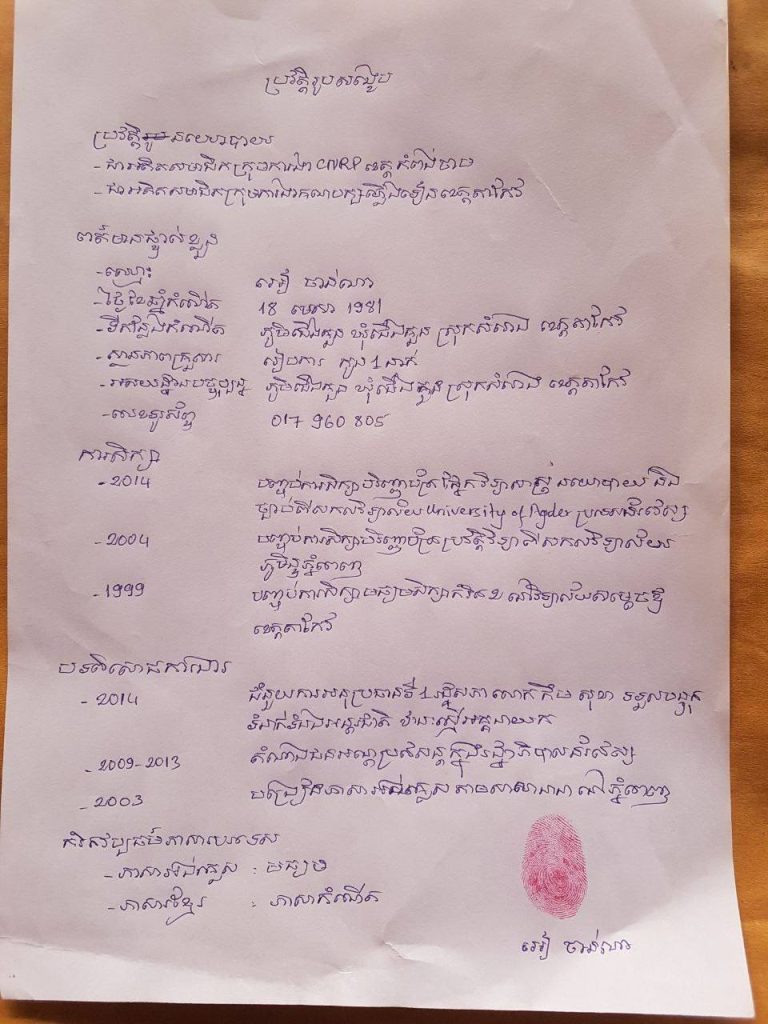 ប្រវត្តិរូបសង្ខេប
ប្រវត្តិរូប នយោបាយ
- ជាអតីតសមាជិកក្រុមការងារ CNRP ខេត្តកំពង់ចាម
- ជាអតីតសមាជិកក្រុមការងារគណបក្សភ្លើងទៀនខេត្តតាកែវ
ពត៌មានផ្ទាល់ខ្លួន
- ឈ្មោះ អៀ ចាន់ណា
- ថ្ងៃខែឆ្នាំកំណើត 18 មេសា 1981
- ទីកន្លែងកំណើត ភូមិជើងគួន ឃុំជើងគួន ស្រុកសំរោង ខេត្តតាកែវ
- ស្ថានភាពគ្រួសារ រៀបការ កូន 1 នាក់
- អាសយដ្ឋានបច្ចុប្បន្ន ភូមិជើងគួន ឃុំជើងគួន ស្រុកសំរោង ខេត្តតាកែវ
- លេខទូរស័ព្ទ 017 960 805
ការសិក្សា
- 2014 បញ្ចប់ការសិក្សាបរិញ្ញាបត្រ ផ្នែកវិទ្យាសាស្ត្រ នយោបាយ និង
ច្បាប់ពីសកលវិទ្យាល័យ University of Agder ប្រទេសន័រវេស
- 2004 បញ្ចប់ការសិក្សាបរិញ្ញាបត្រ ប្រវត្តិវិទ្យា ពីសកលវិទ្យាល័យ
ភូមិន្ទភ្នំពេញ
- 1999 បញ្ចប់ការសិក្សាមធ្យមសិក្សា នៅវិទ្យាល័យសម្តេចឪ
ខេត្តតាកែវ
បទពិសោធការងារ
- 2014 ជំនួយការអនុប្រធានទី 1 រដ្ឋសភា លោក កឹម សុខា ទទួលបន្ទុក
ទំនាក់ទំនងអន្តរជាតិ ឋានៈស្មើអគ្គនាយក
- 2009-2013 តំណាងជនអណ្តោប្រវេសន៍ក្នុងរដ្ឋាភិបាលន័រវេស
- 2003 បង្រៀនភាសាអង់គ្លេសតាមសាលានានា នៅភ្នំពេញ
កំរិតវប្បធម៌ភាសាបរទេស
- ភាសាអង់គ្លេស : មធ្យម
- ភាសាខ្មែរ : ភាសាកំណើត
អៀ ចាន់ណា